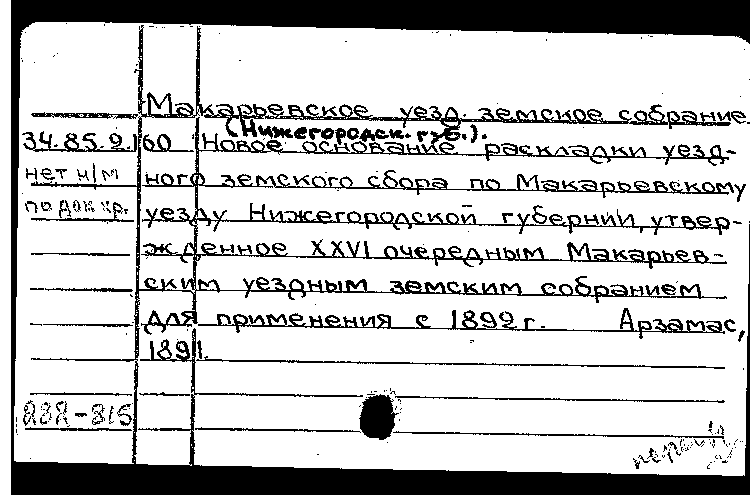 Макарьевское уезд. земское собрание
(Нижегородск. губ.).
34.85.2.160 Новое основание раскладки уезд-
нет н/м ного земского сбора по Макарьевскому
по док хр. уезду Нижегородской губернии, утвер-
жденное XXVI очередным Макарьев-
ским уездным земским собранием
для применения с 1892 г. Арзамас,
1891.
232-815